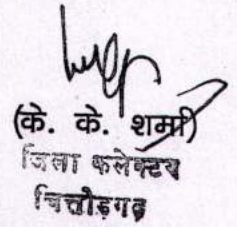 (के. के. शर्मा)
जिला कलेक्टर
चित्तौड़गढ़